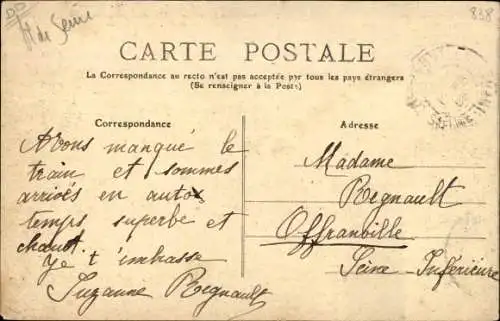 Ht de Seine
838
CARTE POSTALE
La Correspondance au recto n'est pas acceptée par tous les pays étrangers
(Se renseigner à la Poste)
Correspondance
Avons manqué le
train et sommes
arrivés en auto
temps superbe et
chaud.
Je t'embrasse
Suzanne Regnault
Adresse
Madame
Regnault
Offranville
Seine Inférieure